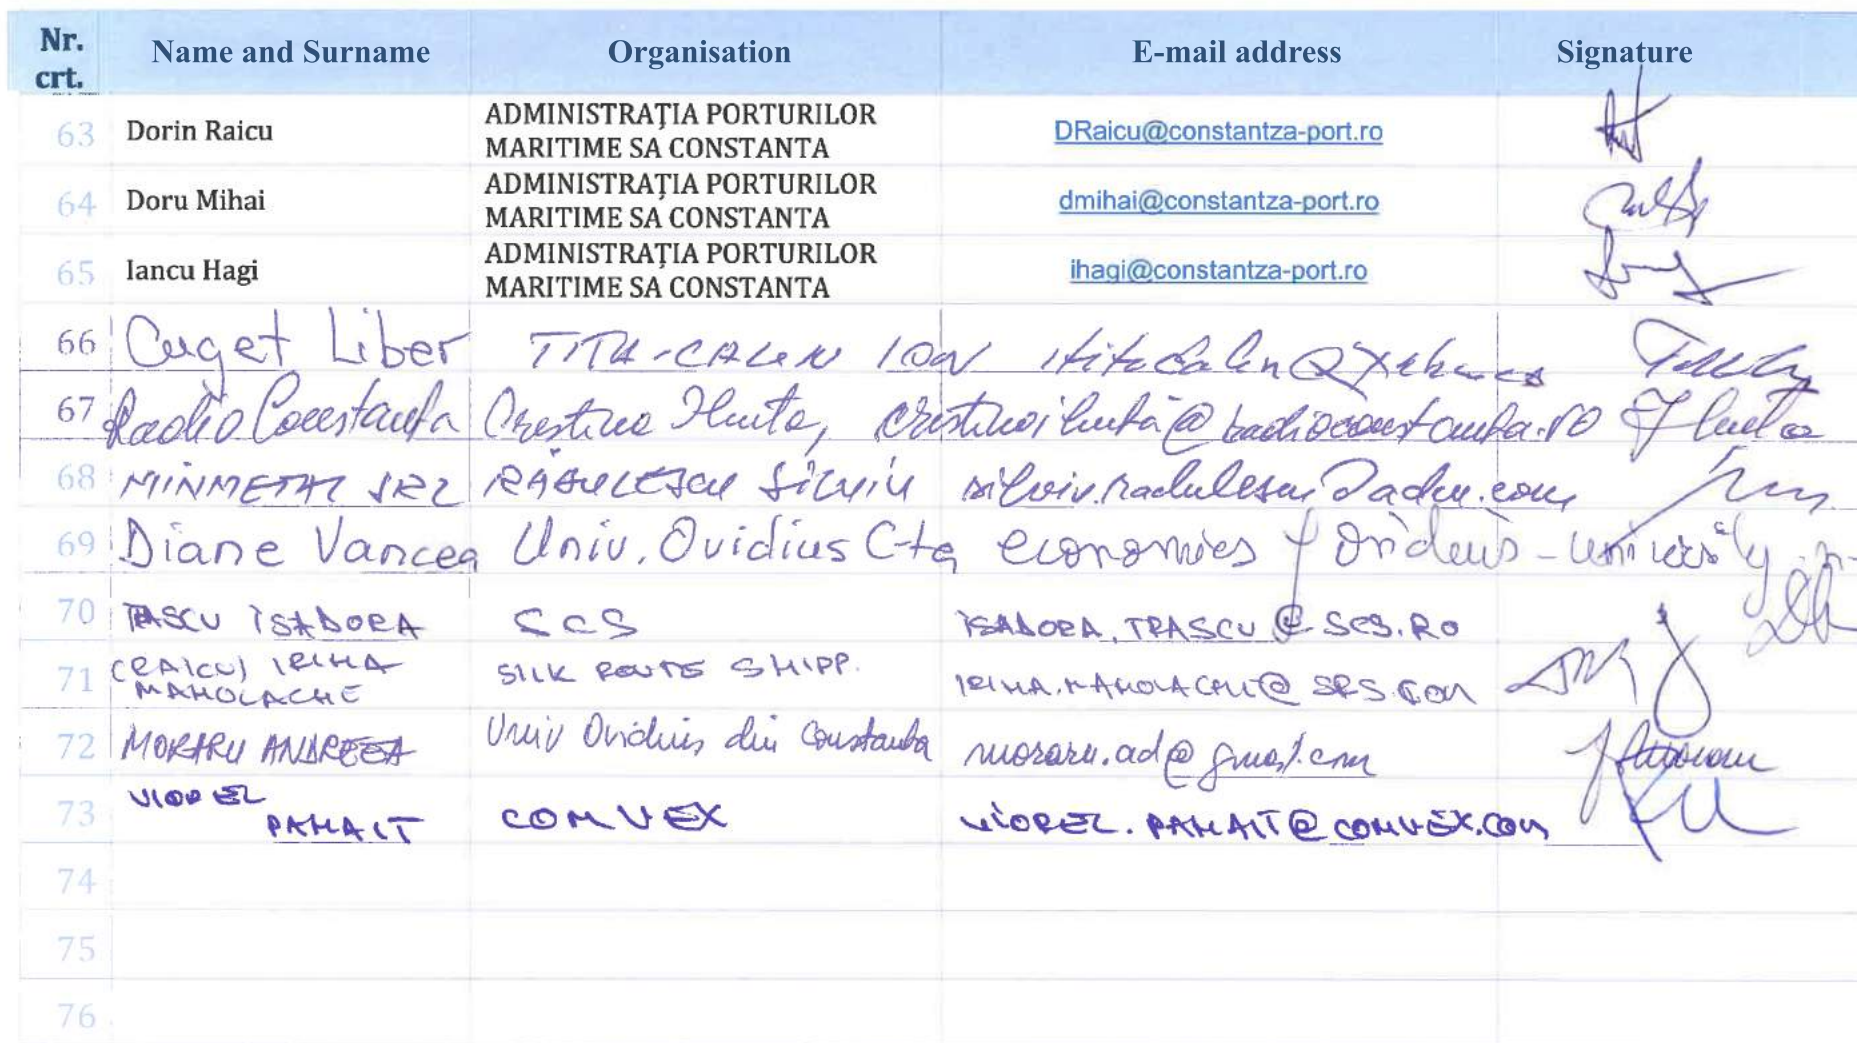 Nr. crt. Name and Surname Organisation E-mail address Signature
63 Dorin Raicu ADMINISTRAȚIA PORTURILOR MARITIME SA CONSTANTA DRaicu@constantza-port.ro
64 Doru Mihai ADMINISTRAȚIA PORTURILOR MARITIME SA CONSTANTA dmihai@constantza-port.ro
65 Iancu Hagi ADMINISTRAȚIA PORTURILOR MARITIME SA CONSTANTA ihagi@constantza-port.ro
66 Cuget Liber TITA-CALIN ION
67 Radio Constanta Cristina
68 MINMETAL SRL RĂDULESCU SILVIU
69 Diane Vancea Univ. Ovidius C-ta economics
70 TRASCU ISADORA SCS ISADORA.TRASCU@SCS.RO
71 (RAICU) IRINA MANOLACHE SILK ROUTE SHIPP. IRINA.MANOLACHE@SRS.COM
72 MORARU ANDREEA Univ Ovidius din Constanta moraru.ad@gmail.com
73 VIOREL PANAIT COMVEX VIOREL.PANAIT@COMVEX.COM
74
75
76